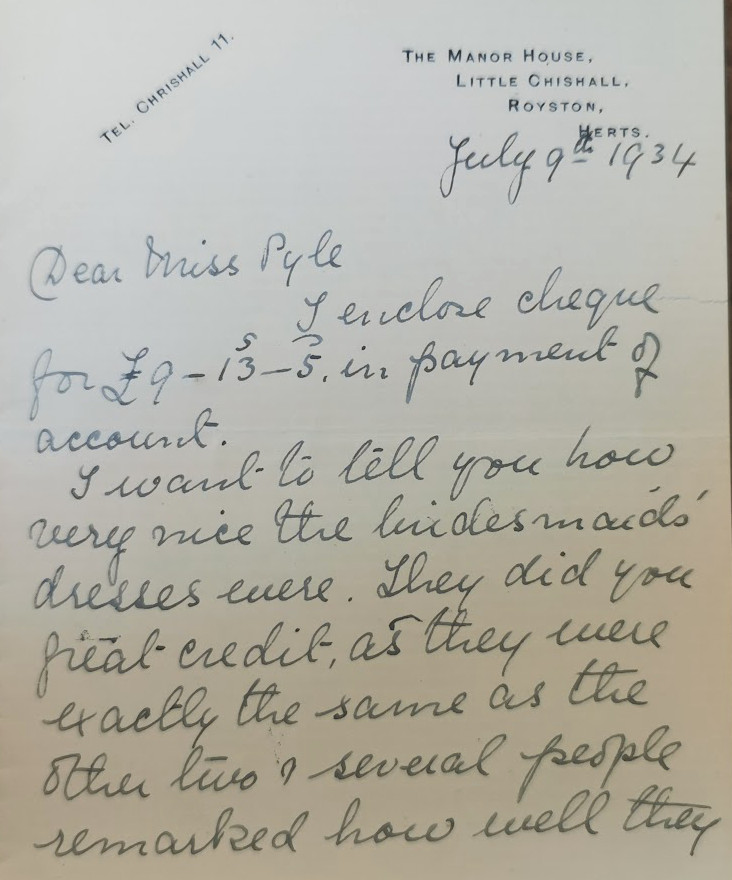 TEL. CHRISHALL 11.
THE MANOR HOUSE,
LITTLE CHISHALL,
ROYSTON,
HERTS.
July 9th 1934
Dear Miss Pyle
I enclose cheque
for £9-13s-5d. in payment of
account.
I want to tell you how
very nice the bridesmaids'
dresses were. They did you
great credit, as they were
exactly the same as the
other two & several people
remarked how well they